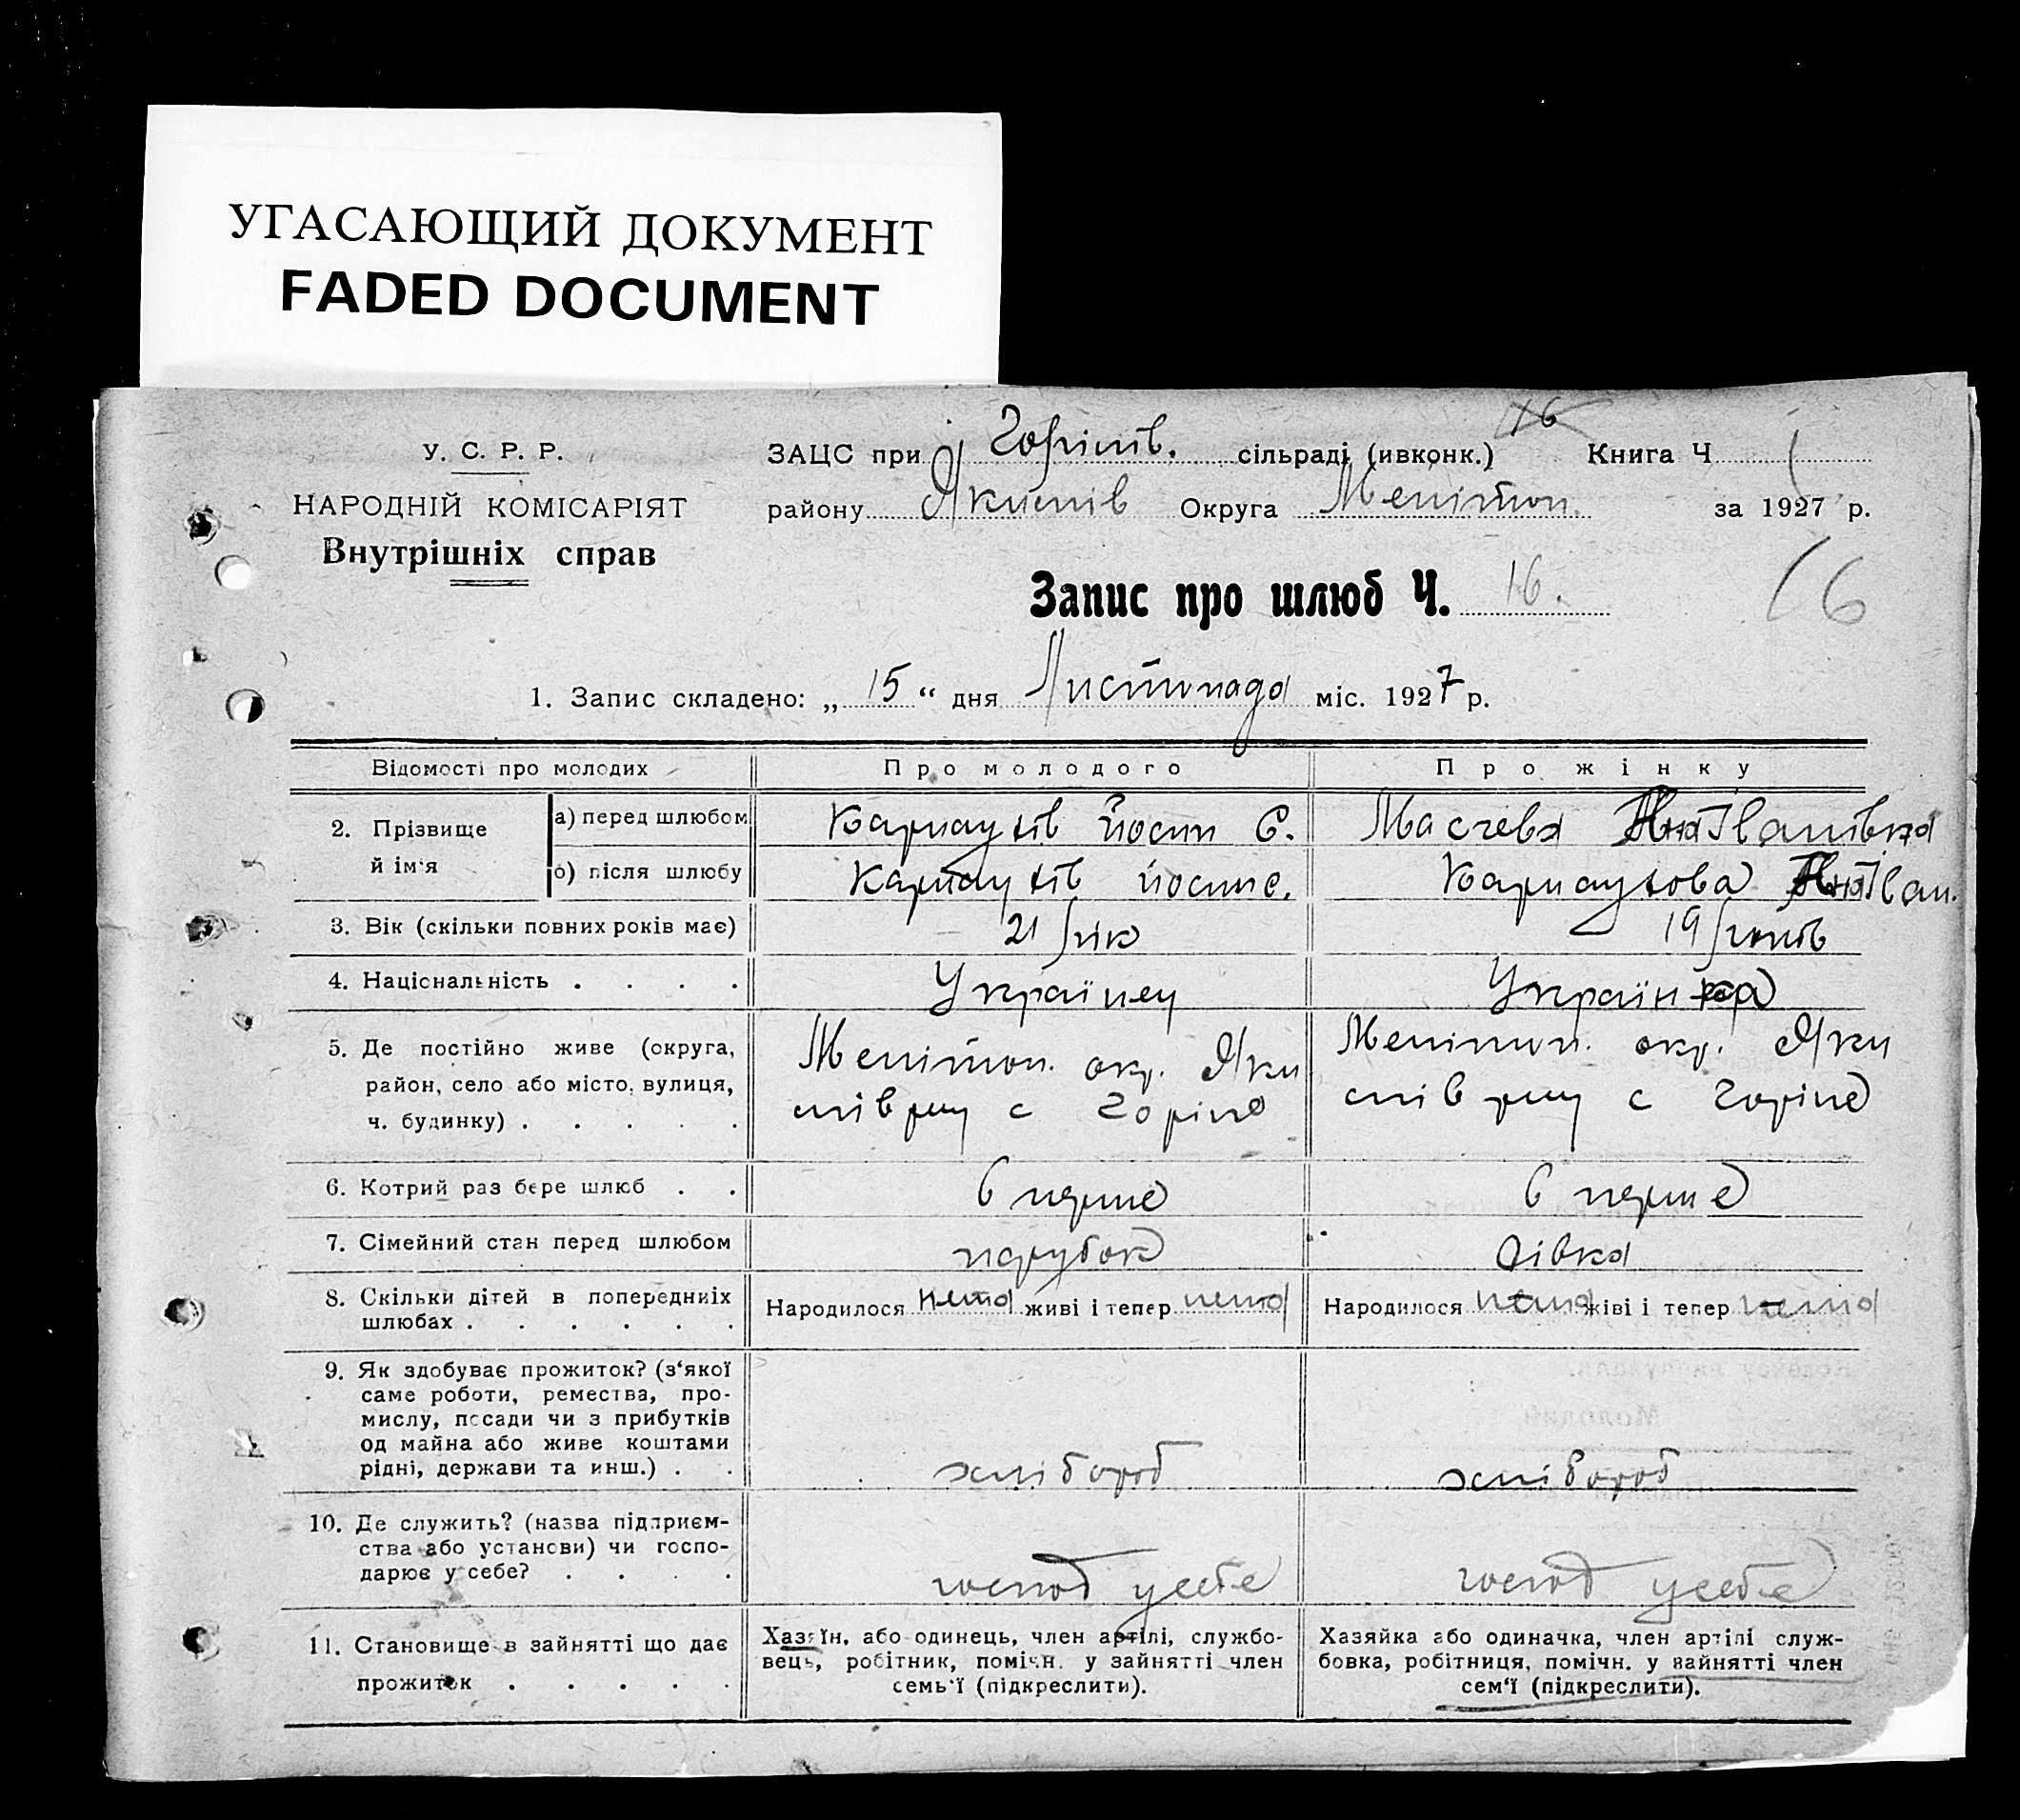 УГАСАЮЩИЙ ДОКУМЕНТ
FADED DOCUMENT
У. С. Р. Р.
НАРОДНІЙ КОМІСАРІЯТ
Внутрішніх справ
16
ЗАЦС при Горілів. сільраді (ивконк.) Книга Ч
району Якимів Округа Меліто п. за 1927 р.
Запис про шлюб Ч. 16.
16
1. Запис складено: „ 15 “ дня Листопада міс. 1927 р.
Відомості про молодих Про молодого Про жінку
2. Прізвище й ім‘я
а) перед шлюбом Йосип Є. Іванівна
б) після шлюбу Йосип Є. Іван.
3. Вік (скільки повних років має) 21 рік 19 років
4. Національність . . . . Українец Українка
5. Де постійно живе (округа, Меліто п. окр. Яки Меліто п. окр. Яки
район, село або місто, вулиця, мів рну с Горіле мів рну с Горіле
ч. будинку) . . . . .
6. Котрий раз бере шлюб . . в перше в перше
7. Сімейний стан перед шлюбом парубок дівка
8. Скільки дітей в попередніх Народилося нема живі і тепер нема Народилося нема жіві і тепер нема
шлюбах . . . . . .
9. Як здобуває прожиток? (з‘якої
саме роботи, ремества, про-
мислу, посади чи з прибутків
од майна або живе коштами
рідні, держави та инш.) . . хлібороб хлібороб
10. Де служить? (назва підприєм-
ства або установи) чи госпо-
дарює у себе? . . . . господ у себе господ у себе
11. Становище в зайнятті що дає Хазяїн, або одинець, член артілі, службо- Хазяйка або одиначка, член артілі служ-
прожиток . . . . . вець, робітник, помічн. у зайнятті член бовка, робітниця, помічн. у зайнятті член
семь‘ї (підкреслити). сем‘ї (підкреслити).